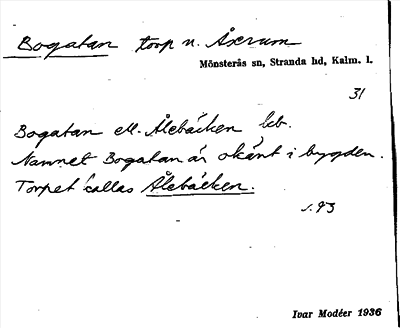 Bogatan torp u. Åserum
Mönsterås sn, Stranda hd, Kalm. l.
31
Bogatan ell. Ålebäcken hb.
Namnet Bogatan är okänt i bygden.
Torpet kallas Ålebäcken.
s. 93
Ivar Modéer 1936